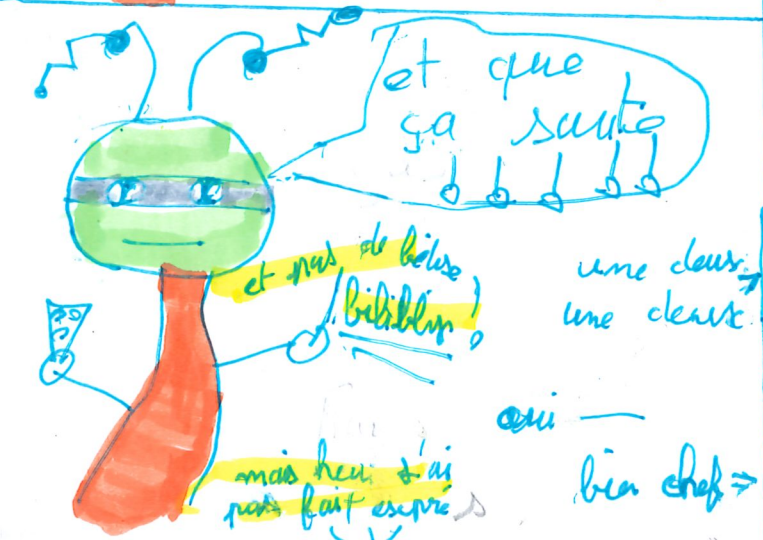 et que
ça saute
et pas de bétise
bibiblip !
une deux
une deux
oui —
bien chef
mais heu j'ai
pas fait esprés